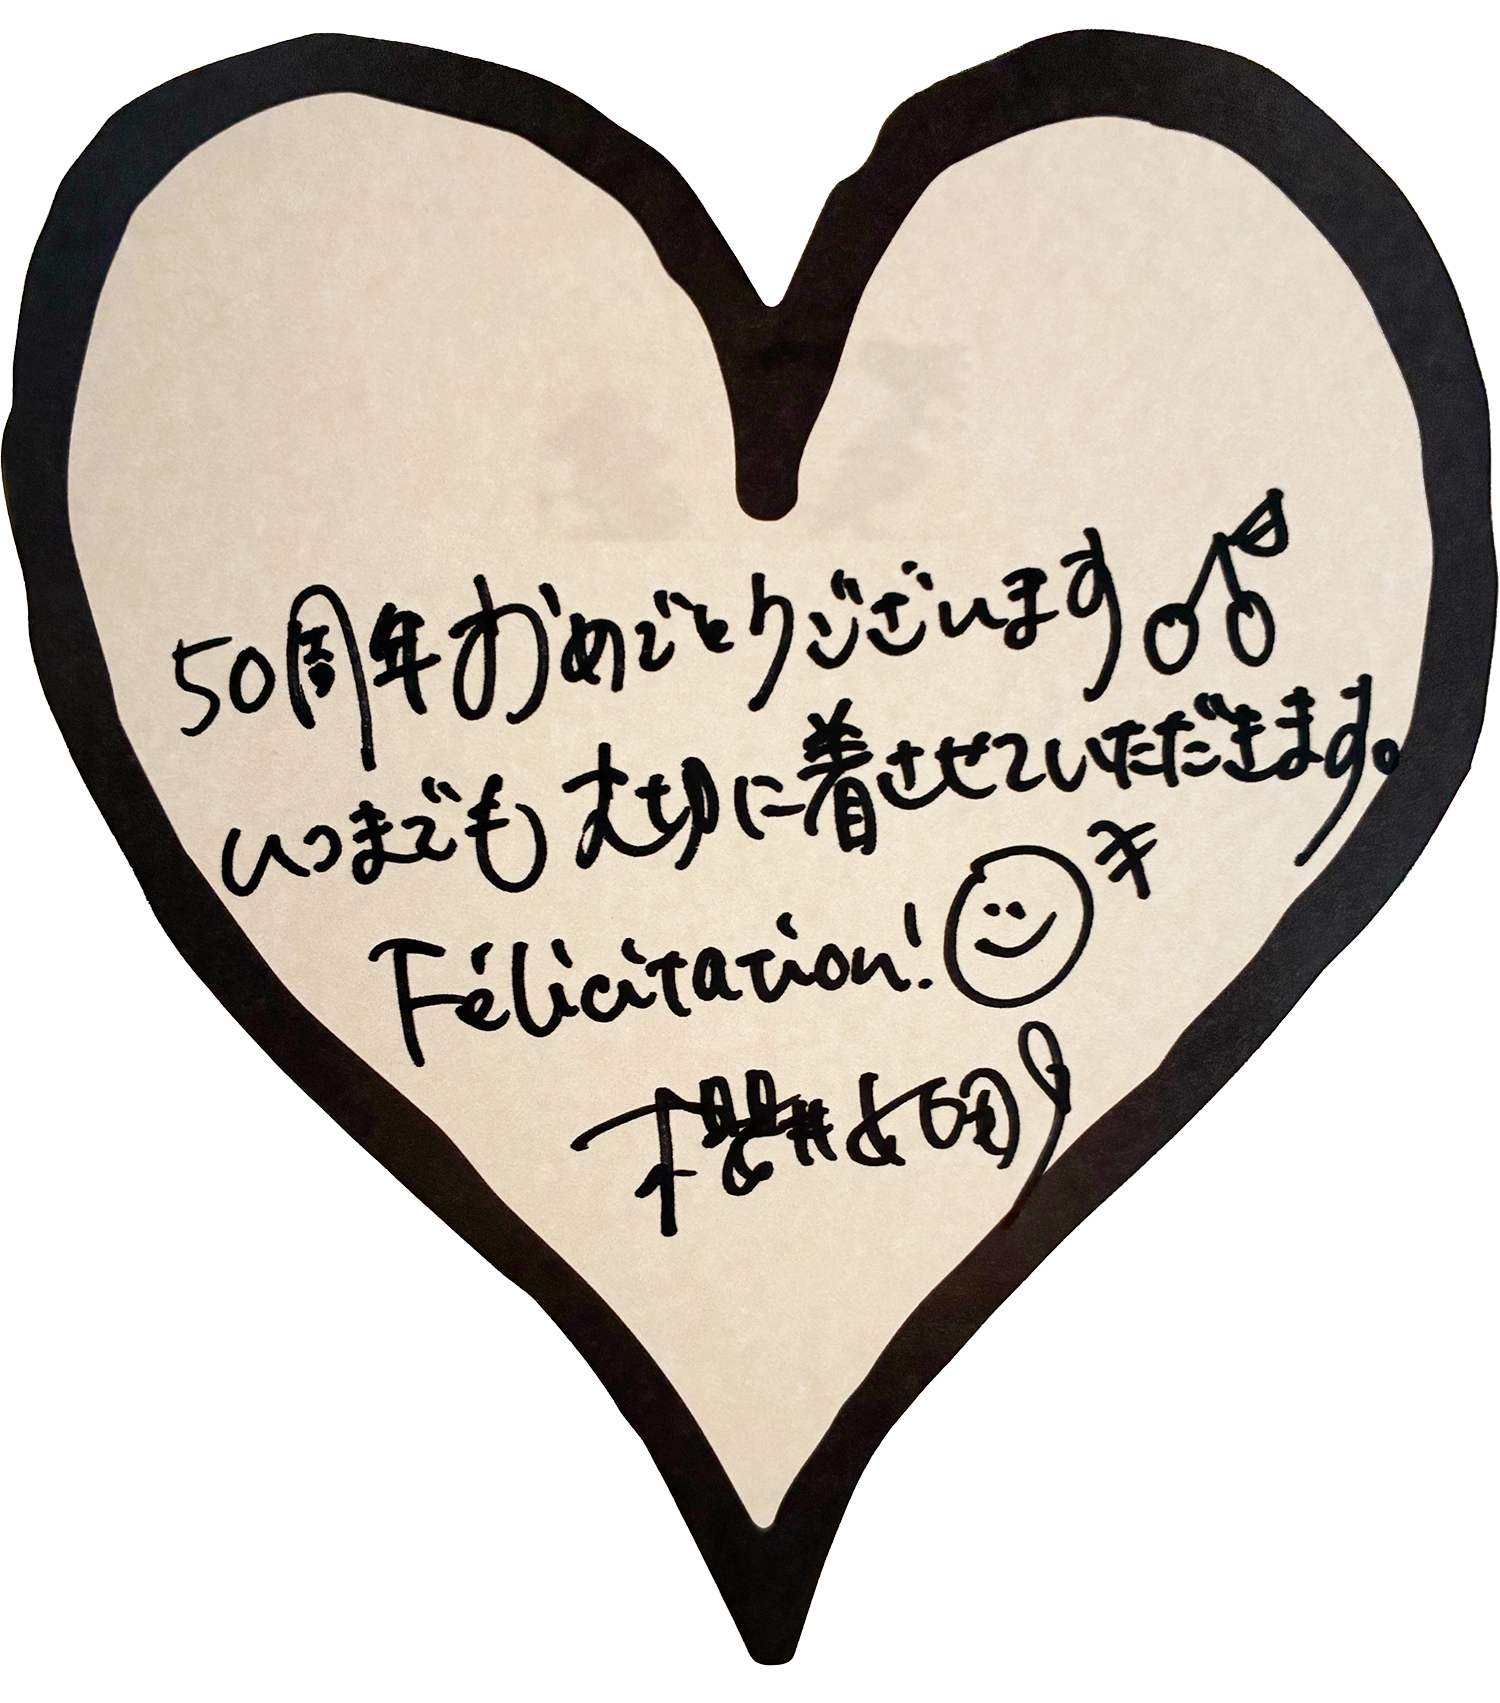 50周年おめでとうございます
いつまでも大切に着させていただきます。
Félicitation!
櫻井